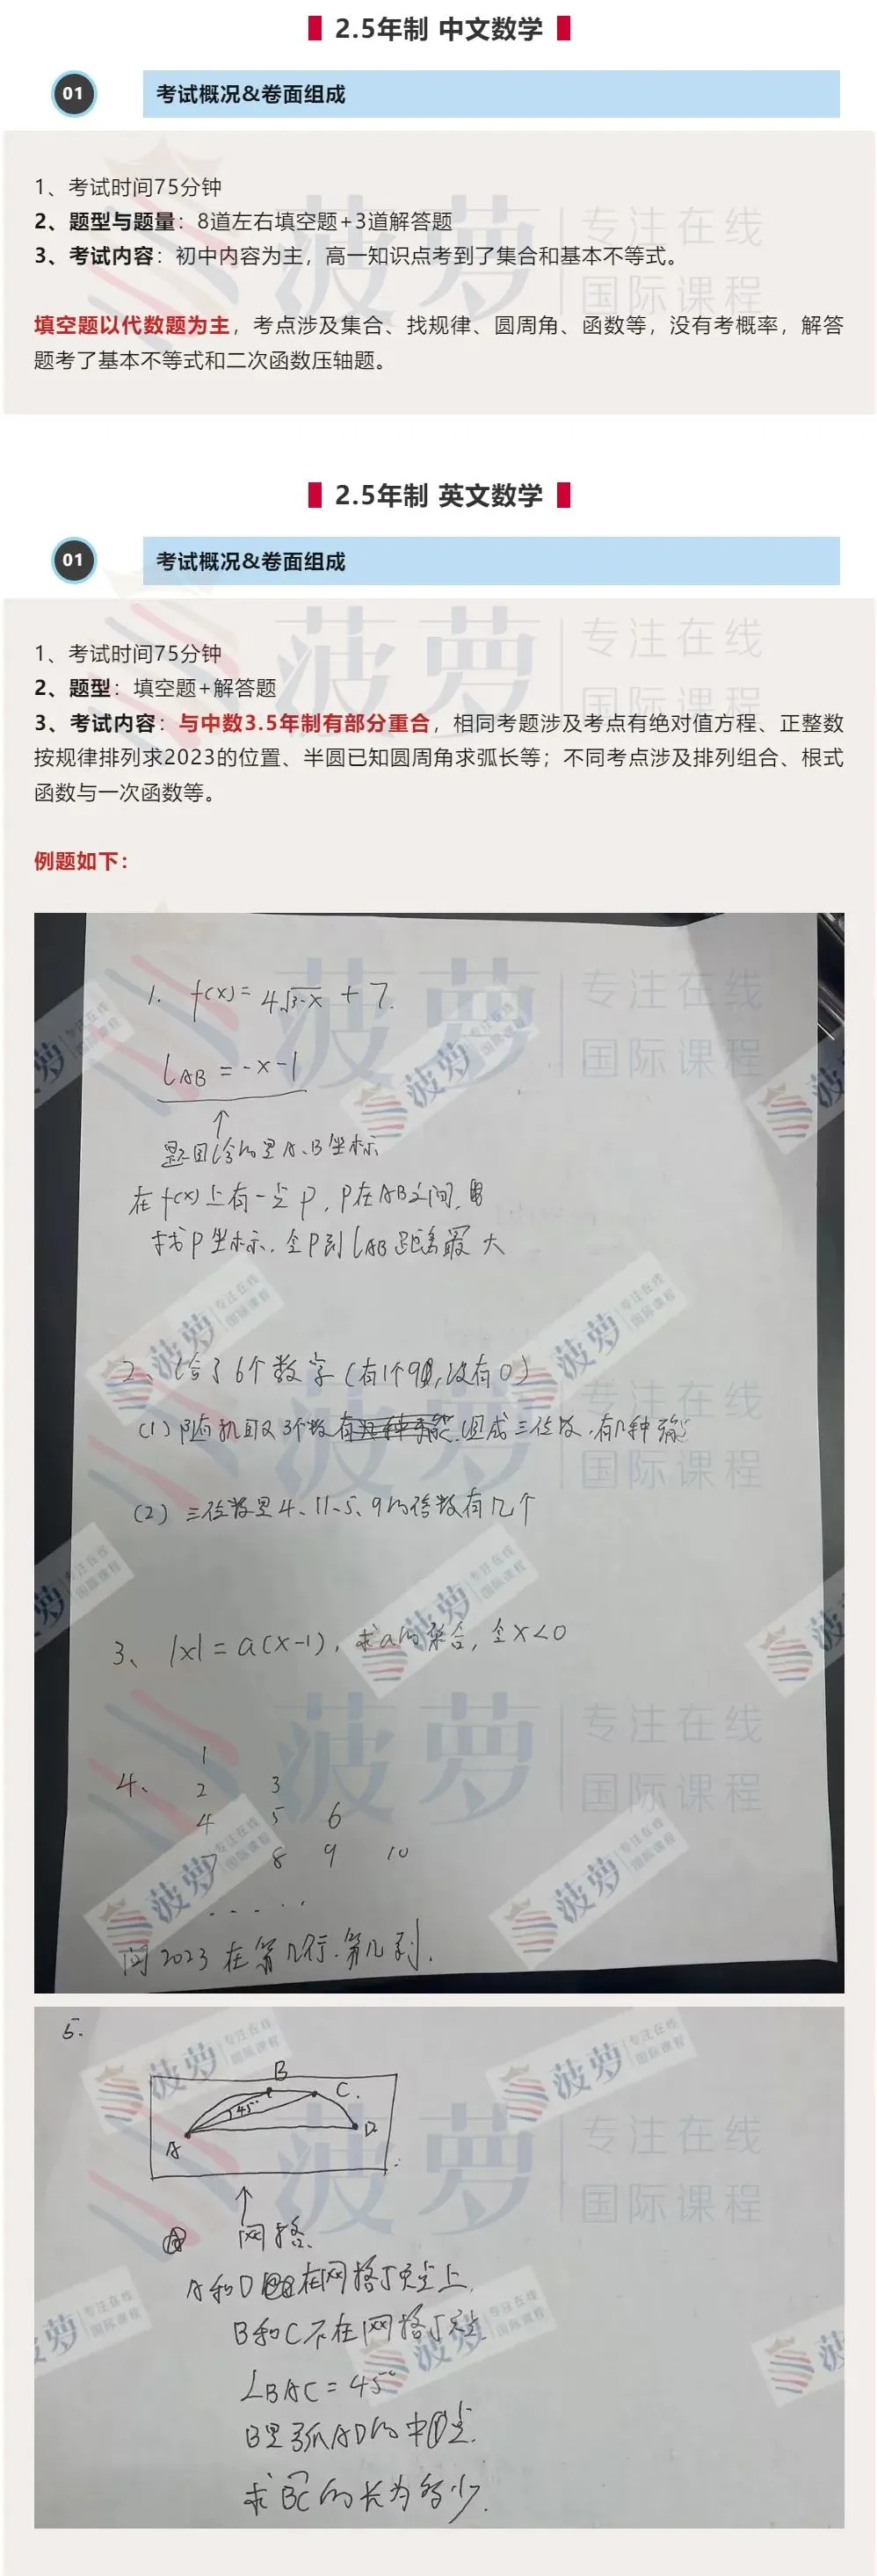 2.5年制 中文数学
01
考试概况&卷面组成
1、考试时间75分钟
2、题型与题量：8道左右填空题+3道解答题
3、考试内容：初中内容为主，高一知识点考到了集合和基本不等式。
填空题以代数题为主，考点涉及集合、找规律、圆周角、函数等，没有考概率，解答
题考了基本不等式和二次函数压轴题。
2.5年制 英文数学
01
考试概况&卷面组成
1、考试时间75分钟
2、题型：填空题+解答题
3、考试内容：与中数3.5年制有部分重合，相同考题涉及考点有绝对值方程、正整数
按规律排列求2023的位置、半圆已知圆周角求弧长等；不同考点涉及排列组合、根式
函数与一次函数等。
例题如下：
1. f(x)= 4√3-x + 7.
lAB = -x-1
题目给的是A、B坐标
在f(x)上有一点P，P在AB之间，
求P坐标，全P到lAB距离最大
2、给了6个数字(有1个9，没有0)
(1) 随机取3个数 组成三位数，有几种可能
(2) 三位数里4、11、5、9的倍数有几个
3、 |x| = a(x-1)，求a的集合，全x<0
4、 1
2 3
4 5 6
7 8 9 10
. . . . .
问2023在第几行.第几列.
5.
B
C.
45°
A
D
网格.
A和D在网格顶点上.
B和C不在网格顶点
∠BAC = 45°
B是弧AD的中点.
求BC的长为多少.
菠萝
专注在线
国际课程